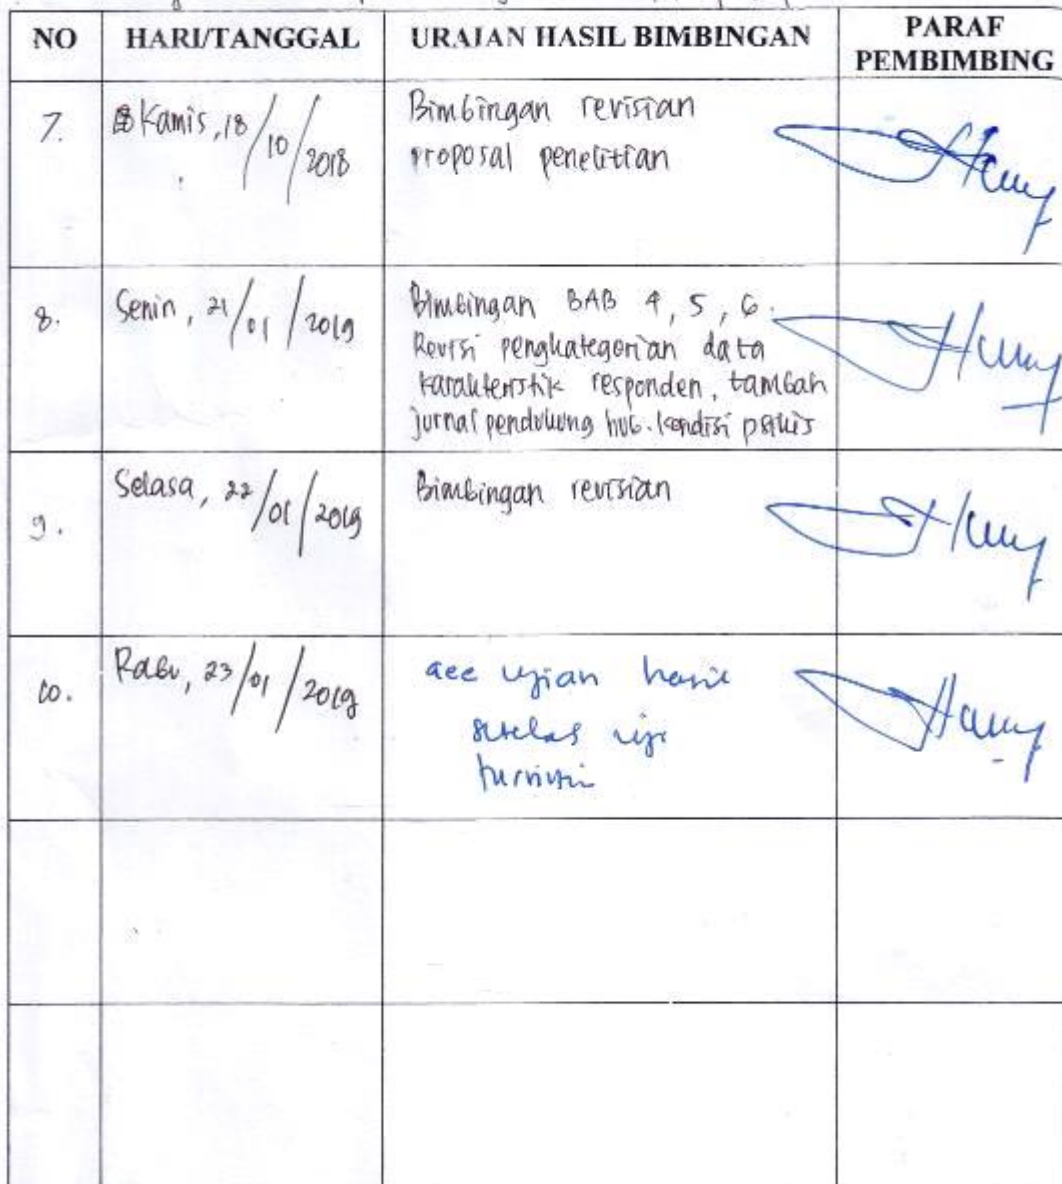 NO HARI/TANGGAL URAIAN HASIL BIMBINGAN PARAF PEMBIMBING
7. Kamis, 18/10/2018 Bimbingan revisian
proposal penelitian
8. Senin, 21/01/2019 Bimbingan BAB 4, 5, 6.
Revisi pengkategorian data
karakteristik responden, tambah
jurnal pendukung hub. kondisi psikis
9. Selasa, 22/01/2019 Bimbingan revisian
10. Rabu, 23/01/2019 acc ujian hasil
setelah uji
turnitin